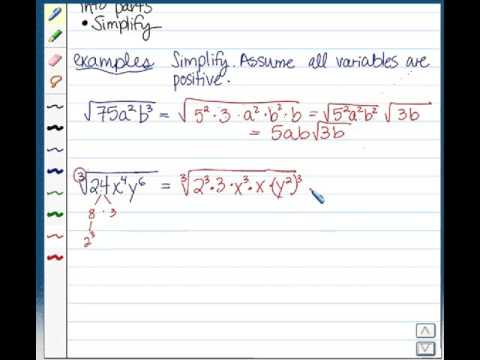 into parts
• Simplify
examples Simplify. Assume all variables are
positive.
√75a²b³ = √5²·3·a²·b²·b = √5²a²b² √3b
= 5ab√3b
∛24x⁴y⁶ = ∛2³·3·x³·x·(y²)³
8 · 3
2³